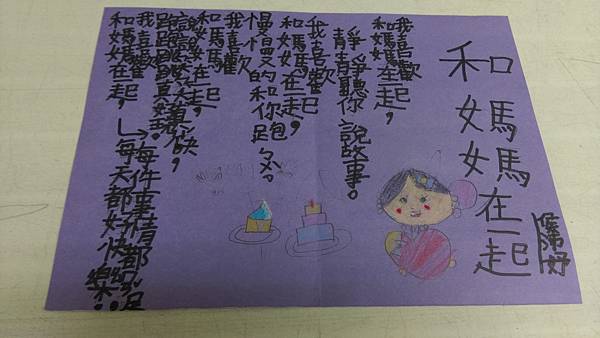 和媽媽在一起
我喜歡
和媽媽在一起,
靜靜聽你說故事。
我喜歡
和媽媽在一起,
慢慢的和你跑ㄅㄨˋ。
我喜歡
和媽媽在一起,
我喜歡
和媽媽在一起,
每件事情都
每天都好快樂!